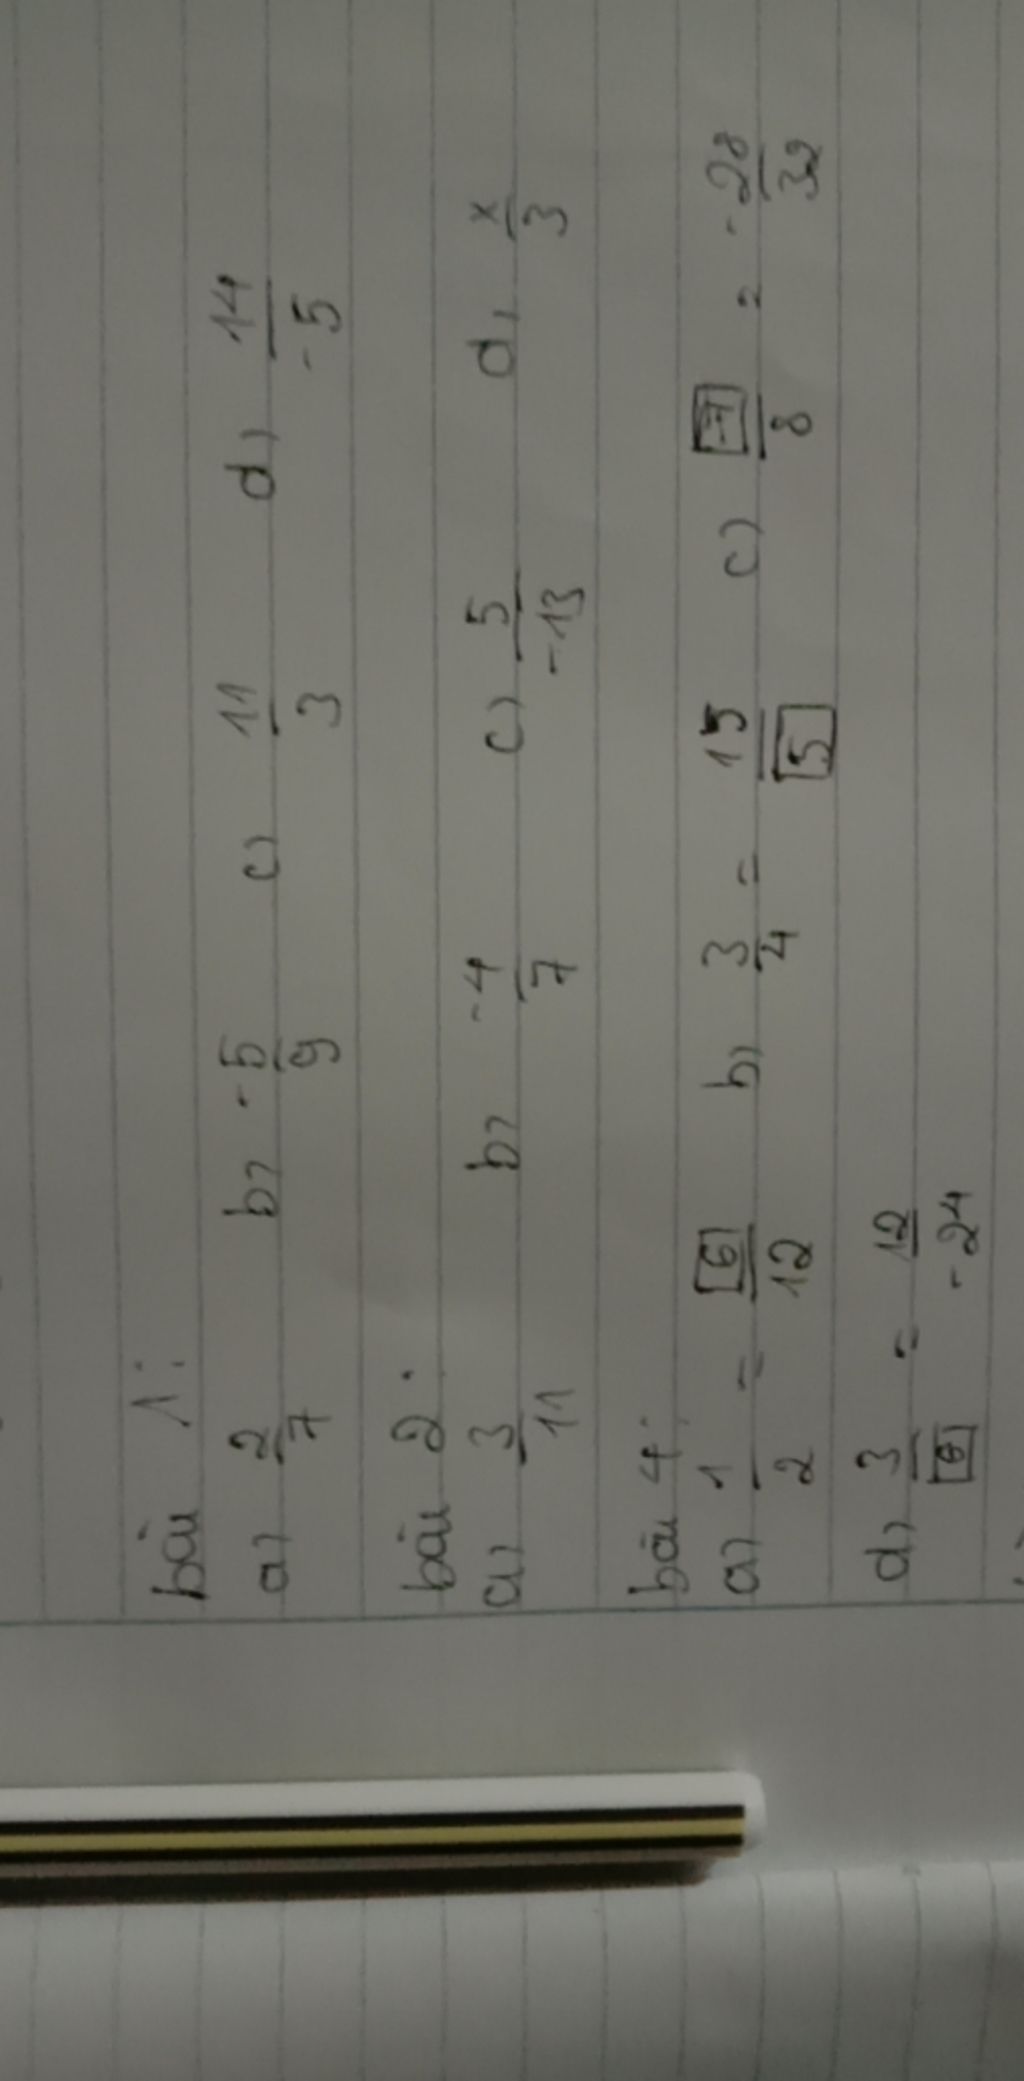 bài 1:
a) 2/7 b) -5/9 c) 11/3 d) 14/-5
bài 2:
a) 3/11 b) -4/7 c) 5/-13 d) x/3
bài 4:
a) 1/2 = 6/12 b) 3/4 = 15/5 c) -7/8 = -28/32
d) 3/6 = 12/-24